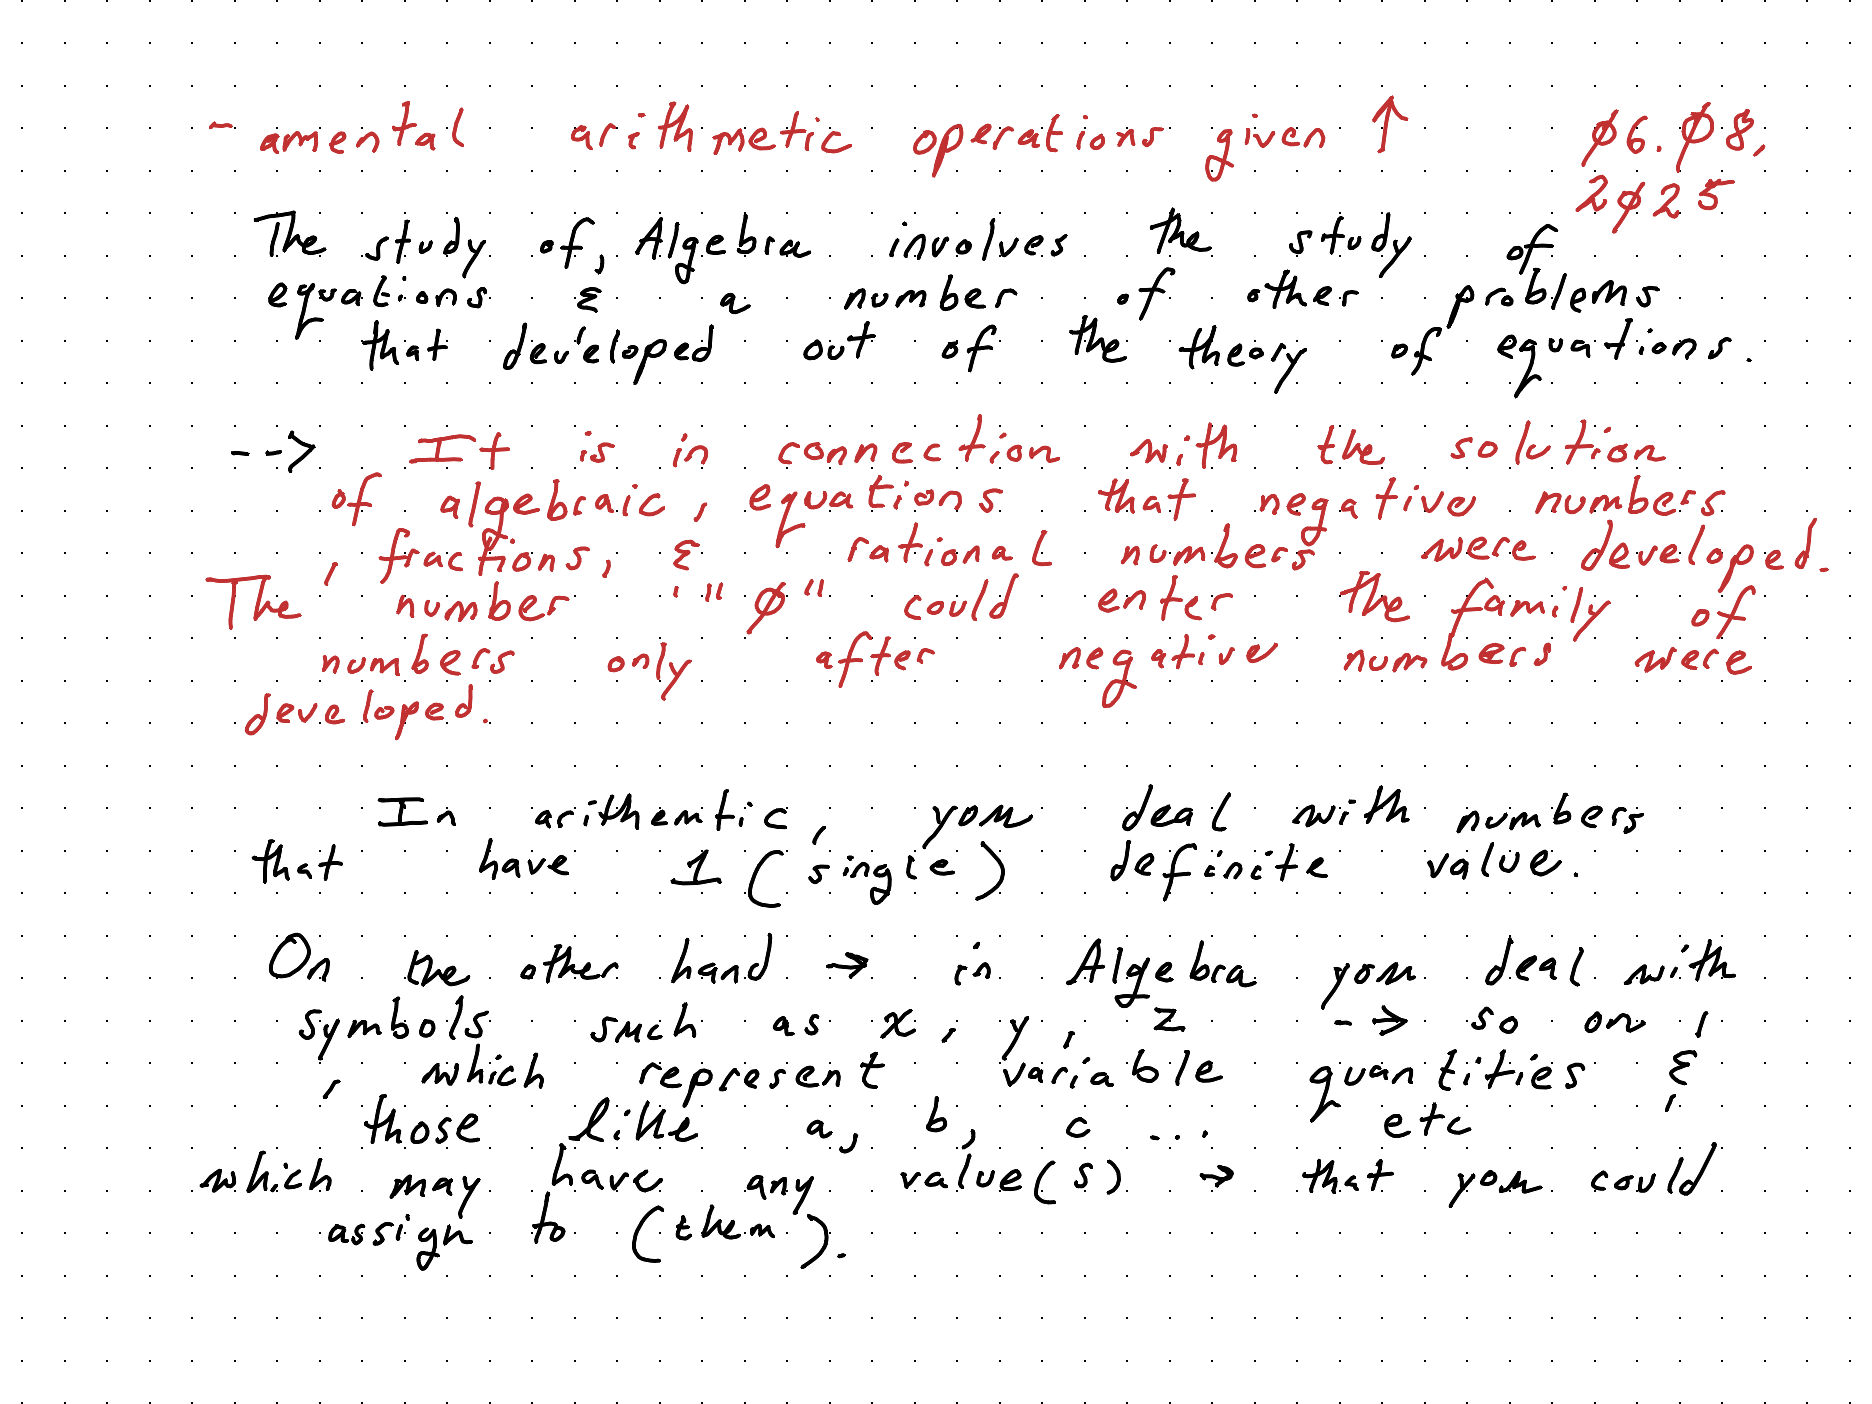 - amental arithmetic operations given ↑ Ø6.Ø8,
2Ø25
The study of, Algebra involves the study of
equations & a number of other problems
that developed out of the theory of equations.
--> It is in connection with the solution
of algebraic, equations that negative numbers
, fractions, & rational numbers were developed.
The number '"Ø" could enter the family of
numbers only after negative numbers were
developed.
In arithemtic, you deal with numbers
that have 1 (single) definite value.
On the other hand → in Algebra you deal with
symbols such as x, y, z -→ so on,
, which represent variable quantities &,
those like a, b, c ... etc
which may have any value(s) → that you could
assign to (them).